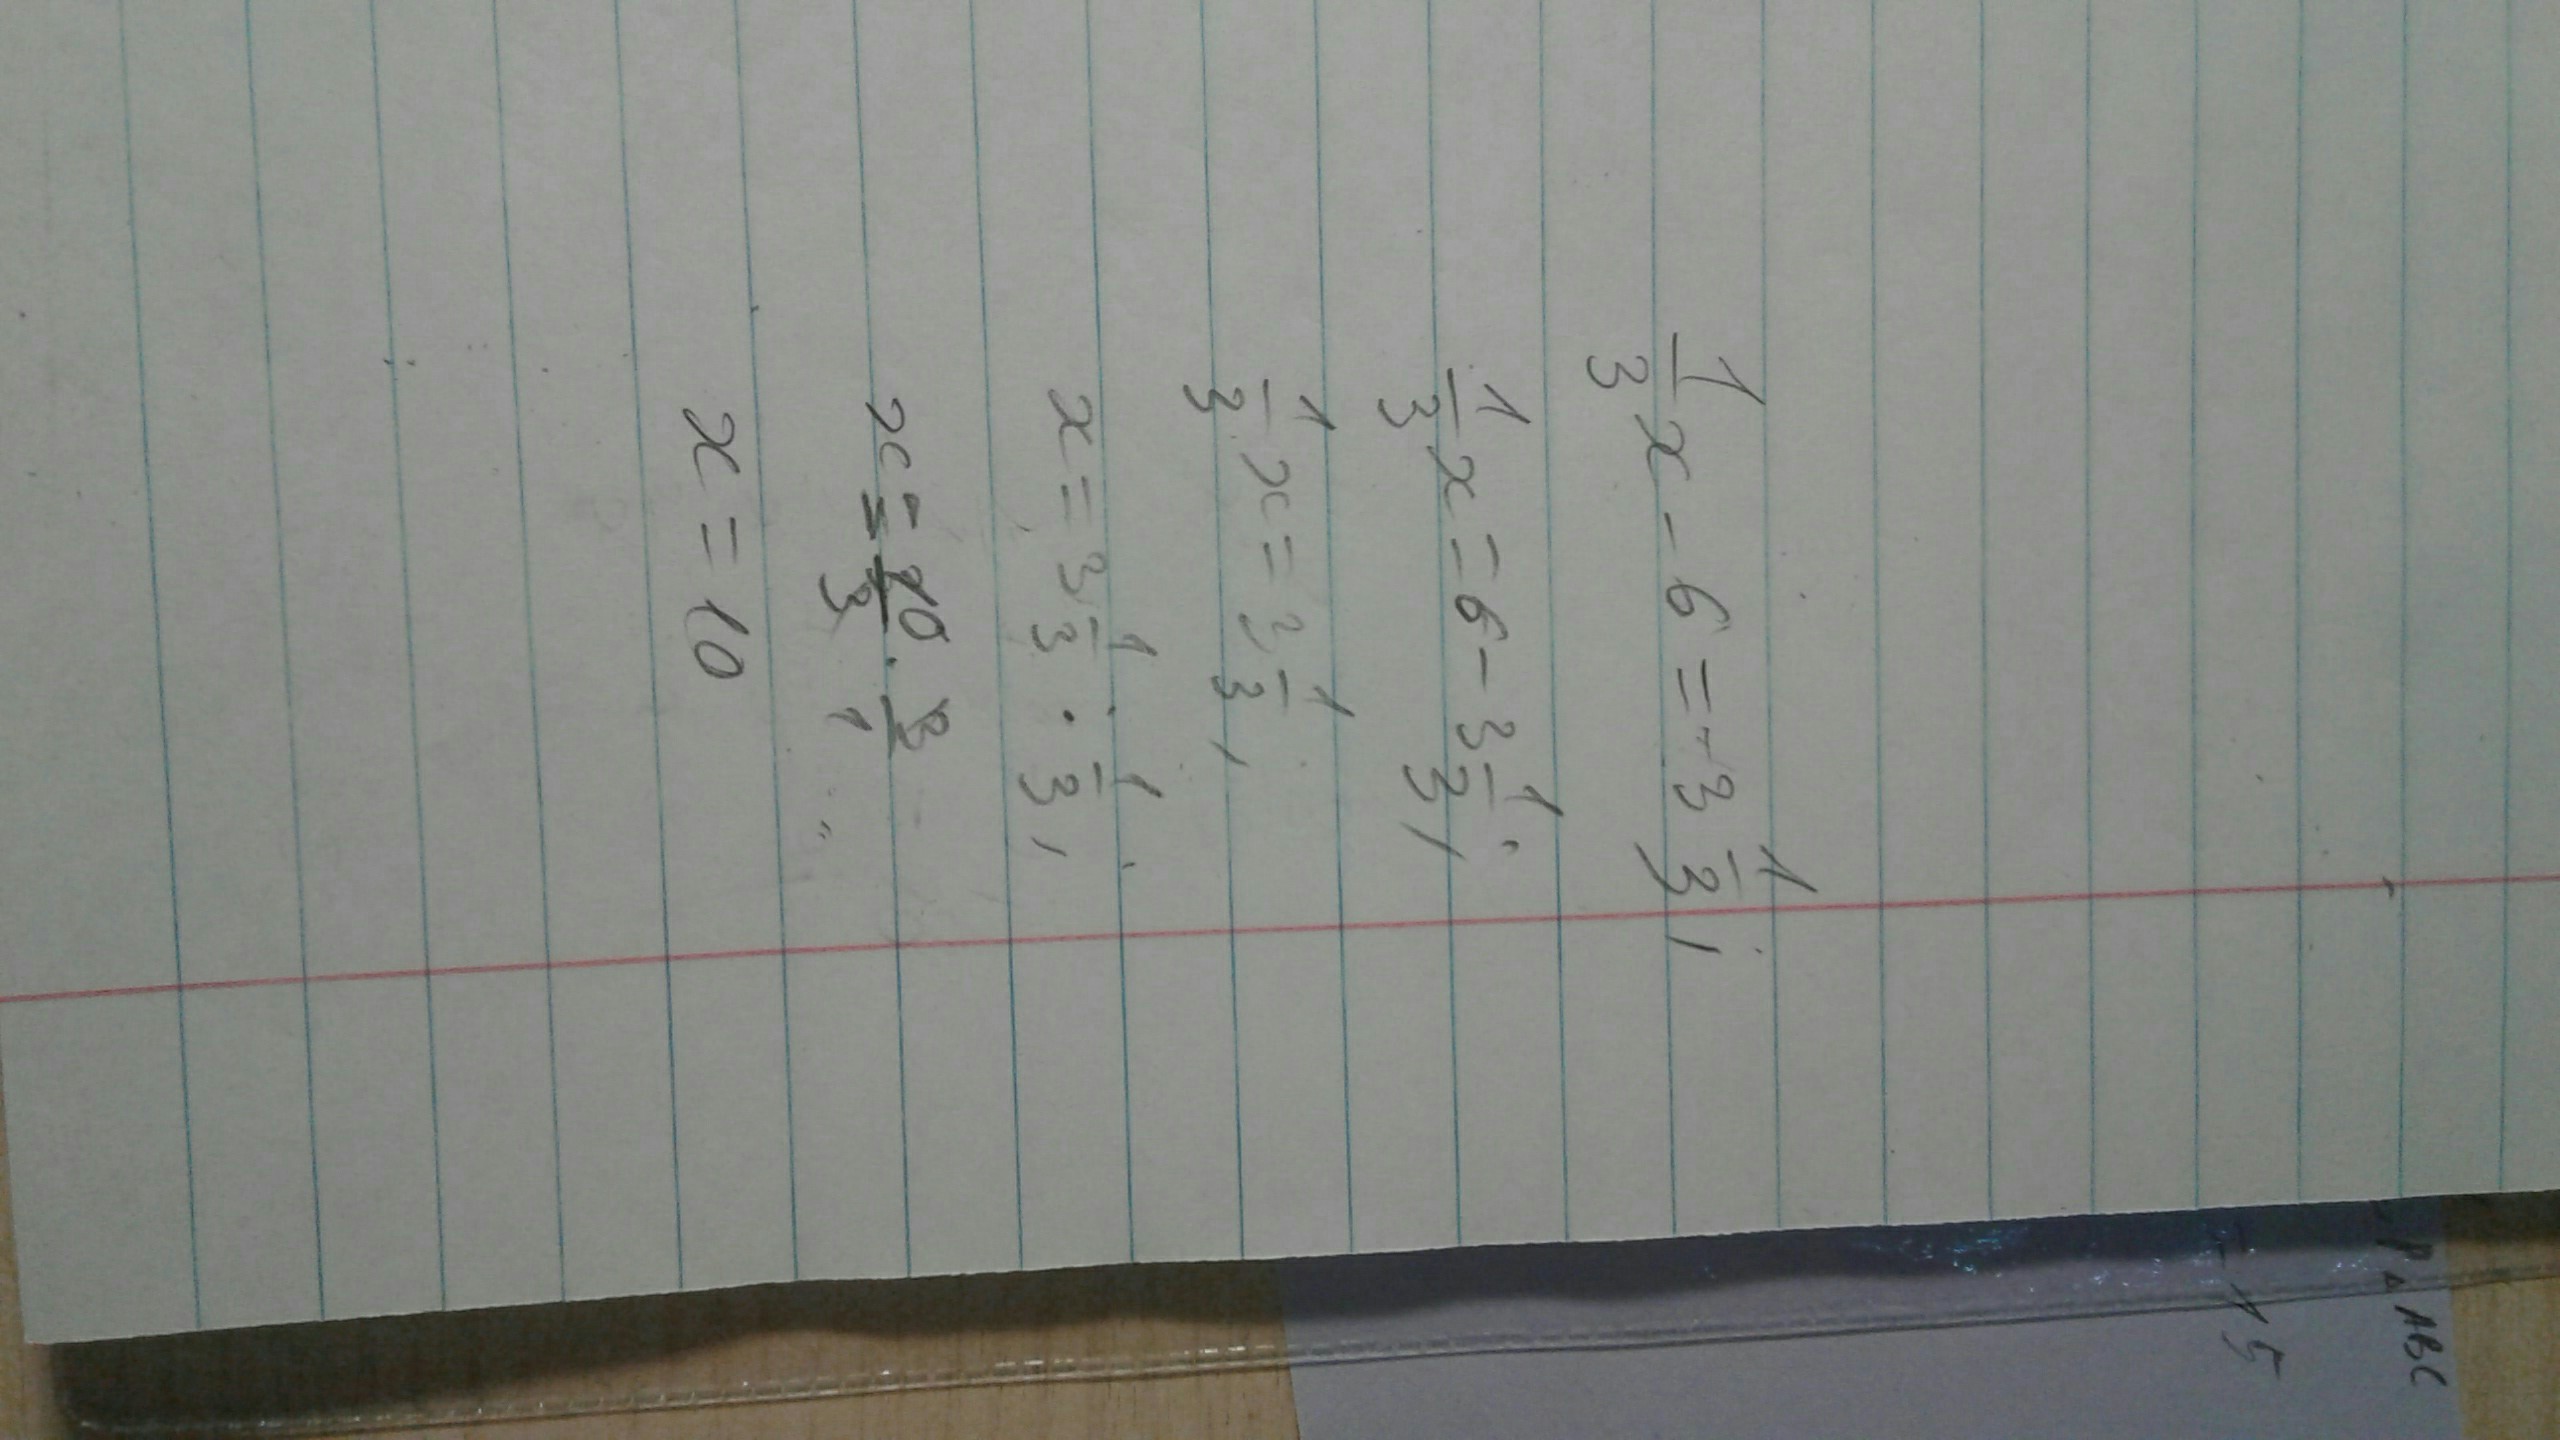 1/3 x - 6 = -3 1/3;
1/3 x = 6 - 3 1/3;
1/3 x = 3 1/3,
x = 3 1/3 · 1/3,
x = 10/3 · 3/1
x = 10
P△ABC
-15